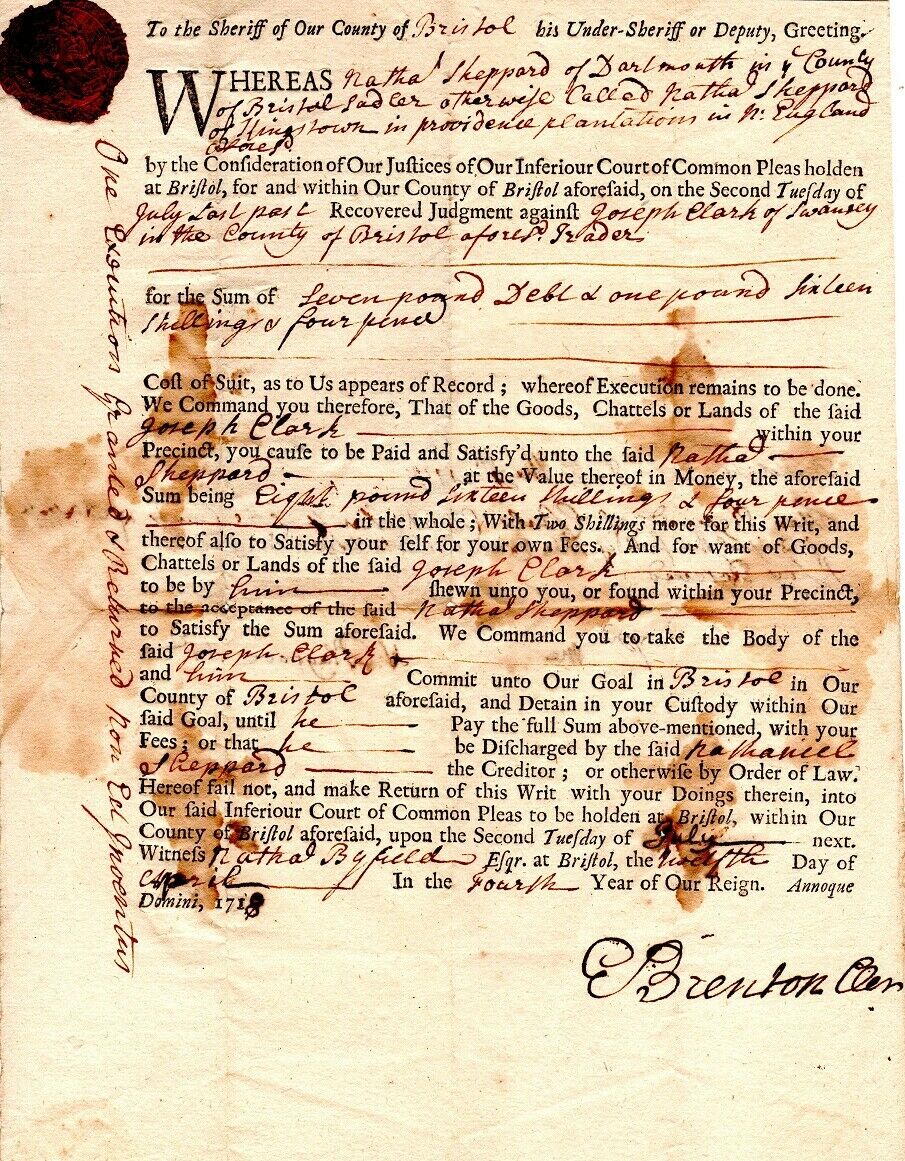 To the Sheriff of Our County of Bristol his Under-Sheriff or Deputy, Greeting.
WHEREAS Nathal Sheppard of Dartmouth in ye County
of Bristol Sadler otherwise Called Nathal Sheppard
of Kingstown in providence plantations in N: England
aforesd
by the Conſideration of Our Juſtices of Our Inferiour Court of Common Pleas holden
at Briſtol, for and within Our County of Briſtol aforeſaid, on the Second Tueſday of
July Last past Recovered Judgment againſt Joseph Clark of Swansey
in the County of Bristol aforesd. Trader
for the Sum of Seven pound Debt & one pound Sixteen
Shillings & four pence
Coſt of Suit, as to Us appears of Record ; whereof Execution remains to be done.
We Command you therefore, That of the Goods, Chattels or Lands of the ſaid
Joseph Clark within your
Precinct, you cauſe to be Paid and Satisfy'd unto the ſaid Nathal
Sheppard at the Value thereof in Money, the aforeſaid
Sum being Eight pound Sixteen Shillings & four pence
in the whole ; With Two Shillings more for this Writ, and
thereof alſo to Satisfy your ſelf for your own Fees. And for want of Goods,
Chattels or Lands of the ſaid Joseph Clark
to be by him ſhewn unto you, or found within your Precinct,
to the acceptance of the ſaid Nathal Sheppard
to Satisfy the Sum aforeſaid. We Command you to take the Body of the
ſaid Joseph Clark
and him Commit unto Our Goal in Bristol in Our
County of Bristol aforeſaid, and Detain in your Cuſtody within Our
ſaid Goal, until he Pay the full Sum above-mentioned, with your
Fees ; or that he be Diſcharged by the ſaid Nathaniel
Sheppard the Creditor ; or otherwiſe by Order of Law.
Hereof fail not, and make Return of this Writ with your Doings therein, into
Our ſaid Inferiour Court of Common Pleas to be holden at Briſtol, within Our
County of Briſtol aforeſaid, upon the Second Tueſday of July next.
Witneſs Nathal Byfield Eſqr. at Briſtol, the twelfth Day of
April In the Fourth Year of Our Reign. Annoque
Domini, 1718
E Brenton Cler
One Execution Granted & Returned Non Est Inventus